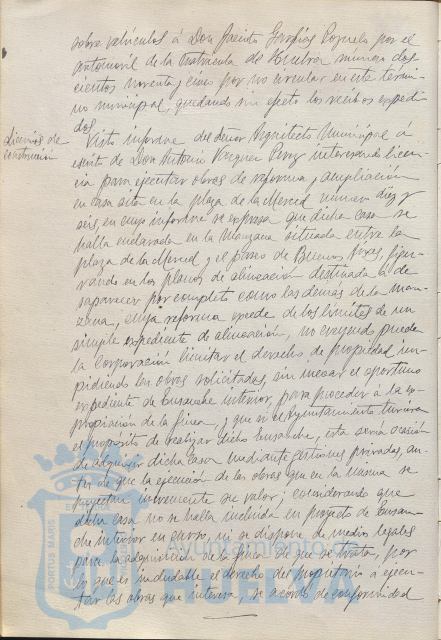 sobre vehículos á Don Jacinto Pozuelo por el
automovil de la matrícula de Huelva numero dos
cientos noventa y cinco por no circular en este termi-
no municipal, quedando sin efecto los recibos expedi-
dos.
Licencias de
construcción
Visto informe del señor Arquitecto Municipal á
escrito de Don Antonio Vazquez Perez interesando licen-
cia para ejecutar obras de reforma y ampliación
en casa sita en la plaza de la Merced numero diez y
seis, en cuyo informe se expresa que dicha casa se
halla enclavada en la manzana situada entre la
plaza de la Merced y el paseo de Buenos Aires, figu-
rando en los planos de alineación destinada á de-
saparecer por completo como las demás de la man-
zana, cuya reforma excede de los límites de un
simple expediente de alineación, no creyendo pueda
la Corporación limitar el derecho de propiedad im-
pidiendo las obras solicitadas, sin incoar el oportuno
expediente de Ensanche interior, para proceder á la ex-
propiación de la finca, y que si el Ayuntamiento tuviera
el propósito de realizar dicho ensanche, esta sería ocasión
de adquirir dicha casa mediante gestiones privadas, an-
tes de que la ejecución de las obras que en la misma se
proyectan incremente su valor; considerando que
dicha casa no se halla incluida en proyecto de Ensan-
che interior en curso, ni se dispone de medios legales
para la adquisición de la finca de que se trata, por
lo que es indudable el derecho del propietario á ejecu-
tar las obras que interesa, se acordó de conformidad
PORTUS MARIS
Ayuntamiento de
HUELVA